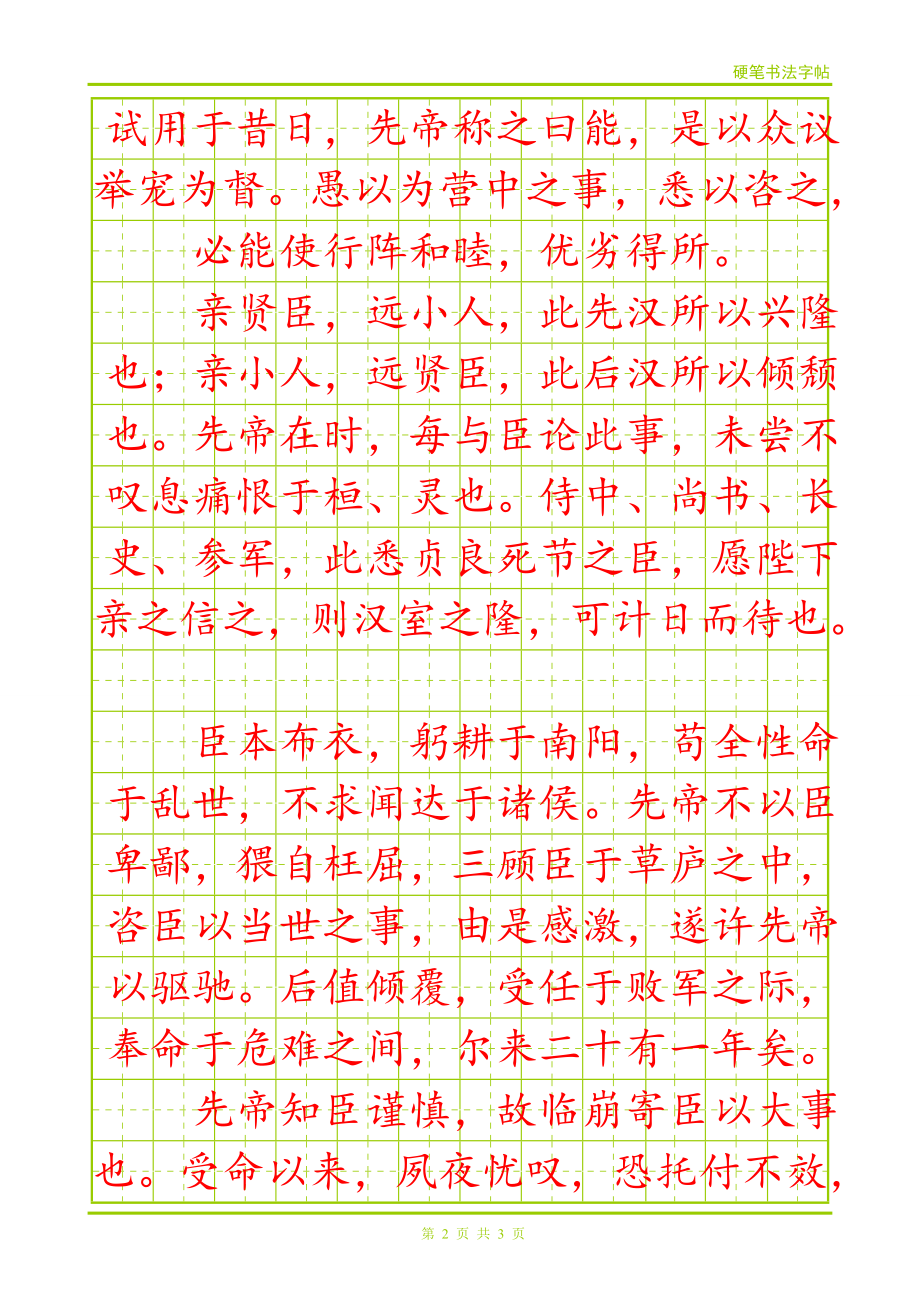 硬笔书法字帖
试用于昔日，先帝称之曰能，是以众议
举宠为督。愚以为营中之事，悉以咨之，
必能使行阵和睦，优劣得所。
亲贤臣，远小人，此先汉所以兴隆
也；亲小人，远贤臣，此后汉所以倾颓
也。先帝在时，每与臣论此事，未尝不
叹息痛恨于桓、灵也。侍中、尚书、长
史、参军，此悉贞良死节之臣，愿陛下
亲之信之，则汉室之隆，可计日而待也。
臣本布衣，躬耕于南阳，苟全性命
于乱世，不求闻达于诸侯。先帝不以臣
卑鄙，猥自枉屈，三顾臣于草庐之中，
咨臣以当世之事，由是感激，遂许先帝
以驱驰。后值倾覆，受任于败军之际，
奉命于危难之间，尔来二十有一年矣。
先帝知臣谨慎，故临崩寄臣以大事
也。受命以来，夙夜忧叹，恐托付不效，
第 2 页 共 3 页